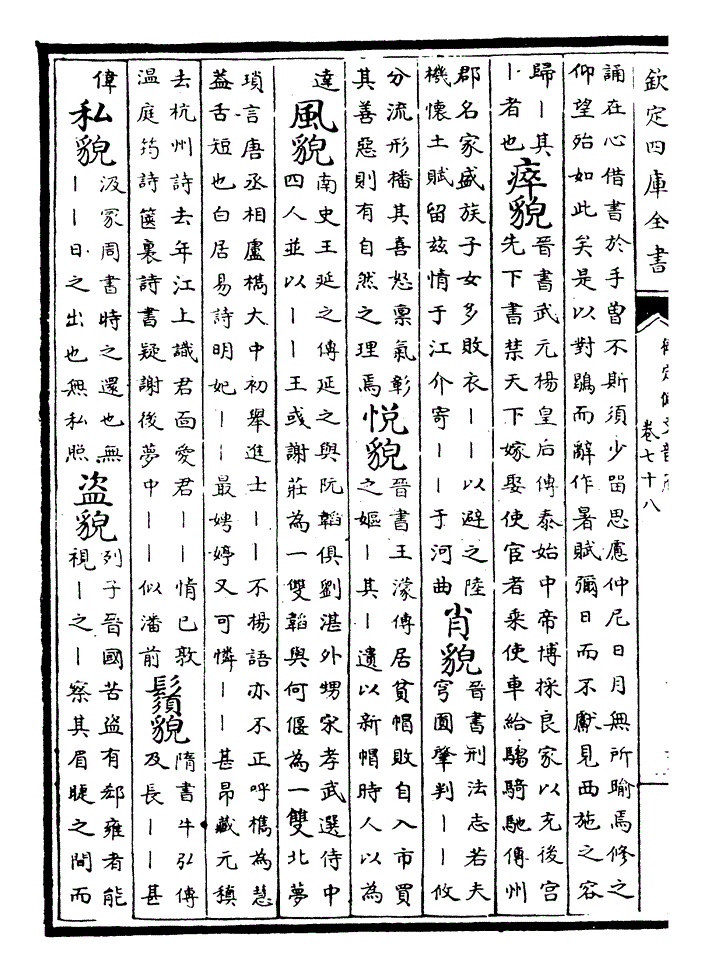 欽定四庫全書
卷七十八
誦在心借書於手曾不斯須少畱思慮仲尼日月無所踰焉修之
仰望殆如此矣是以對鶡而辭作暑賦彌日而不獻見西施之容
歸丨其
丨者也
瘁貌
晉書武元楊皇后傳泰始中帝博採良家以充後宮
先下書禁天下嫁娶使宦者乘使車給騶騎馳傳州
郡名家盛族子女多敗衣丨丨以避之陸
機懷土賦留兹情于江介寄丨丨于河曲
肖貌
晉書刑法志若夫
穹圓肇判丨丨攸
分流形播其喜怒禀氣彰
其善惡則有自然之理焉
悅貌
晉書王濛傳居貧帽敗自入市買
之嫗丨其丨遺以新帽時人以為
達
風貌
南史王延之傳延之與阮韜俱劉湛外甥宋孝武選侍中
四人並以丨丨王彧謝莊為一雙韜與何偃為一雙北夢
瑣言唐丞相盧檇大中初舉進士丨丨不揚語亦不正呼檇為慧
葢舌短也白居易詩明妃丨丨最娉婷又可憐丨丨甚昂藏元稹
去杭州詩去年江上識君面愛君丨丨情已敦
温庭筠詩篋裏詩書疑謝後夢中丨丨似潘前
鬚貌
隋書牛弘傳
及長丨丨甚
偉
私貌
汲冢周書時之還也無
丨丨日之出也無私照
盜貌
列子晉國苦盜有郄雍者能
視丨之丨察其眉睫之間而